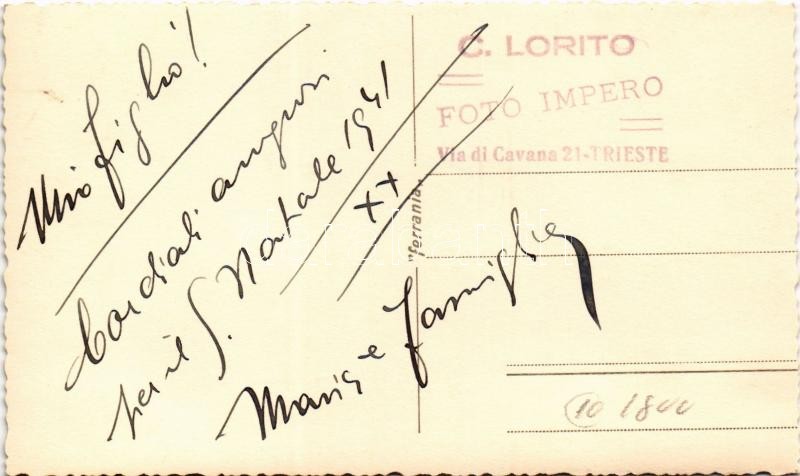 Mio figlio!
Cordiali auguri
per il S. Natale 1941
XX
Maria e famiglia
C. LORITO
FOTO IMPERO
Via di Cavana 21-TRIESTE
"ferrania"
10 1800